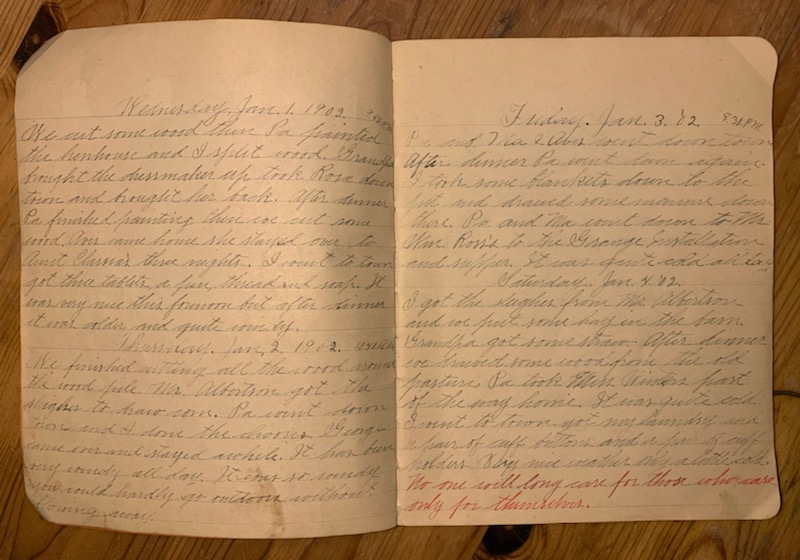 Wednesday, Jan. 1. 1902. 9
We cut some wood then Pa painted
the henhouse and I split wood. Grandpa
brought the dressmaker up took Rosa down
town and brought her back. After dinner
Pa finished painting then we cut some
wood. Avis came home she stayed over to
Aunt three nights. I went to town
got three tablets, a pen, thread and soap. It
was very nice this fornoon but after dinner
it was colder and quite windy.
Thursday, Jan. 2. 1902.
We finished cutting all the wood around
the wood pile. Mr. Albertson got the
sleighs to draw corn. Pa went down
town and I done the chores. George
came over and stayed awhile. It has been
very windy all day. It was so windy
you could hardly go outdoors without
blowing away.
Friday. Jan. 3. '02. 8 30 P.M.
Pa and Ma & Avis went down town
After dinner Pa went down again.
I took some blankets down to the
pit and drawed some manure down
there. Pa and Ma went down to Mr.
Ross's to the Grange Installation
and supper. It was quite cold all day.
Saturday. Jan. 4. '02.
I got the sleighs from Mr. Albertson
and we put some hay in the barn.
Grandpa got some straw. After dinner
we drawed some wood from the old
pasture. Pa took Miss part
of the way home. It was quite cold
I went to town got my laundry and
a pair of cuff buttons and a pair of cuff
holders. Very nice weather only a little cold.
No one will long care for those who care
only for themselves.